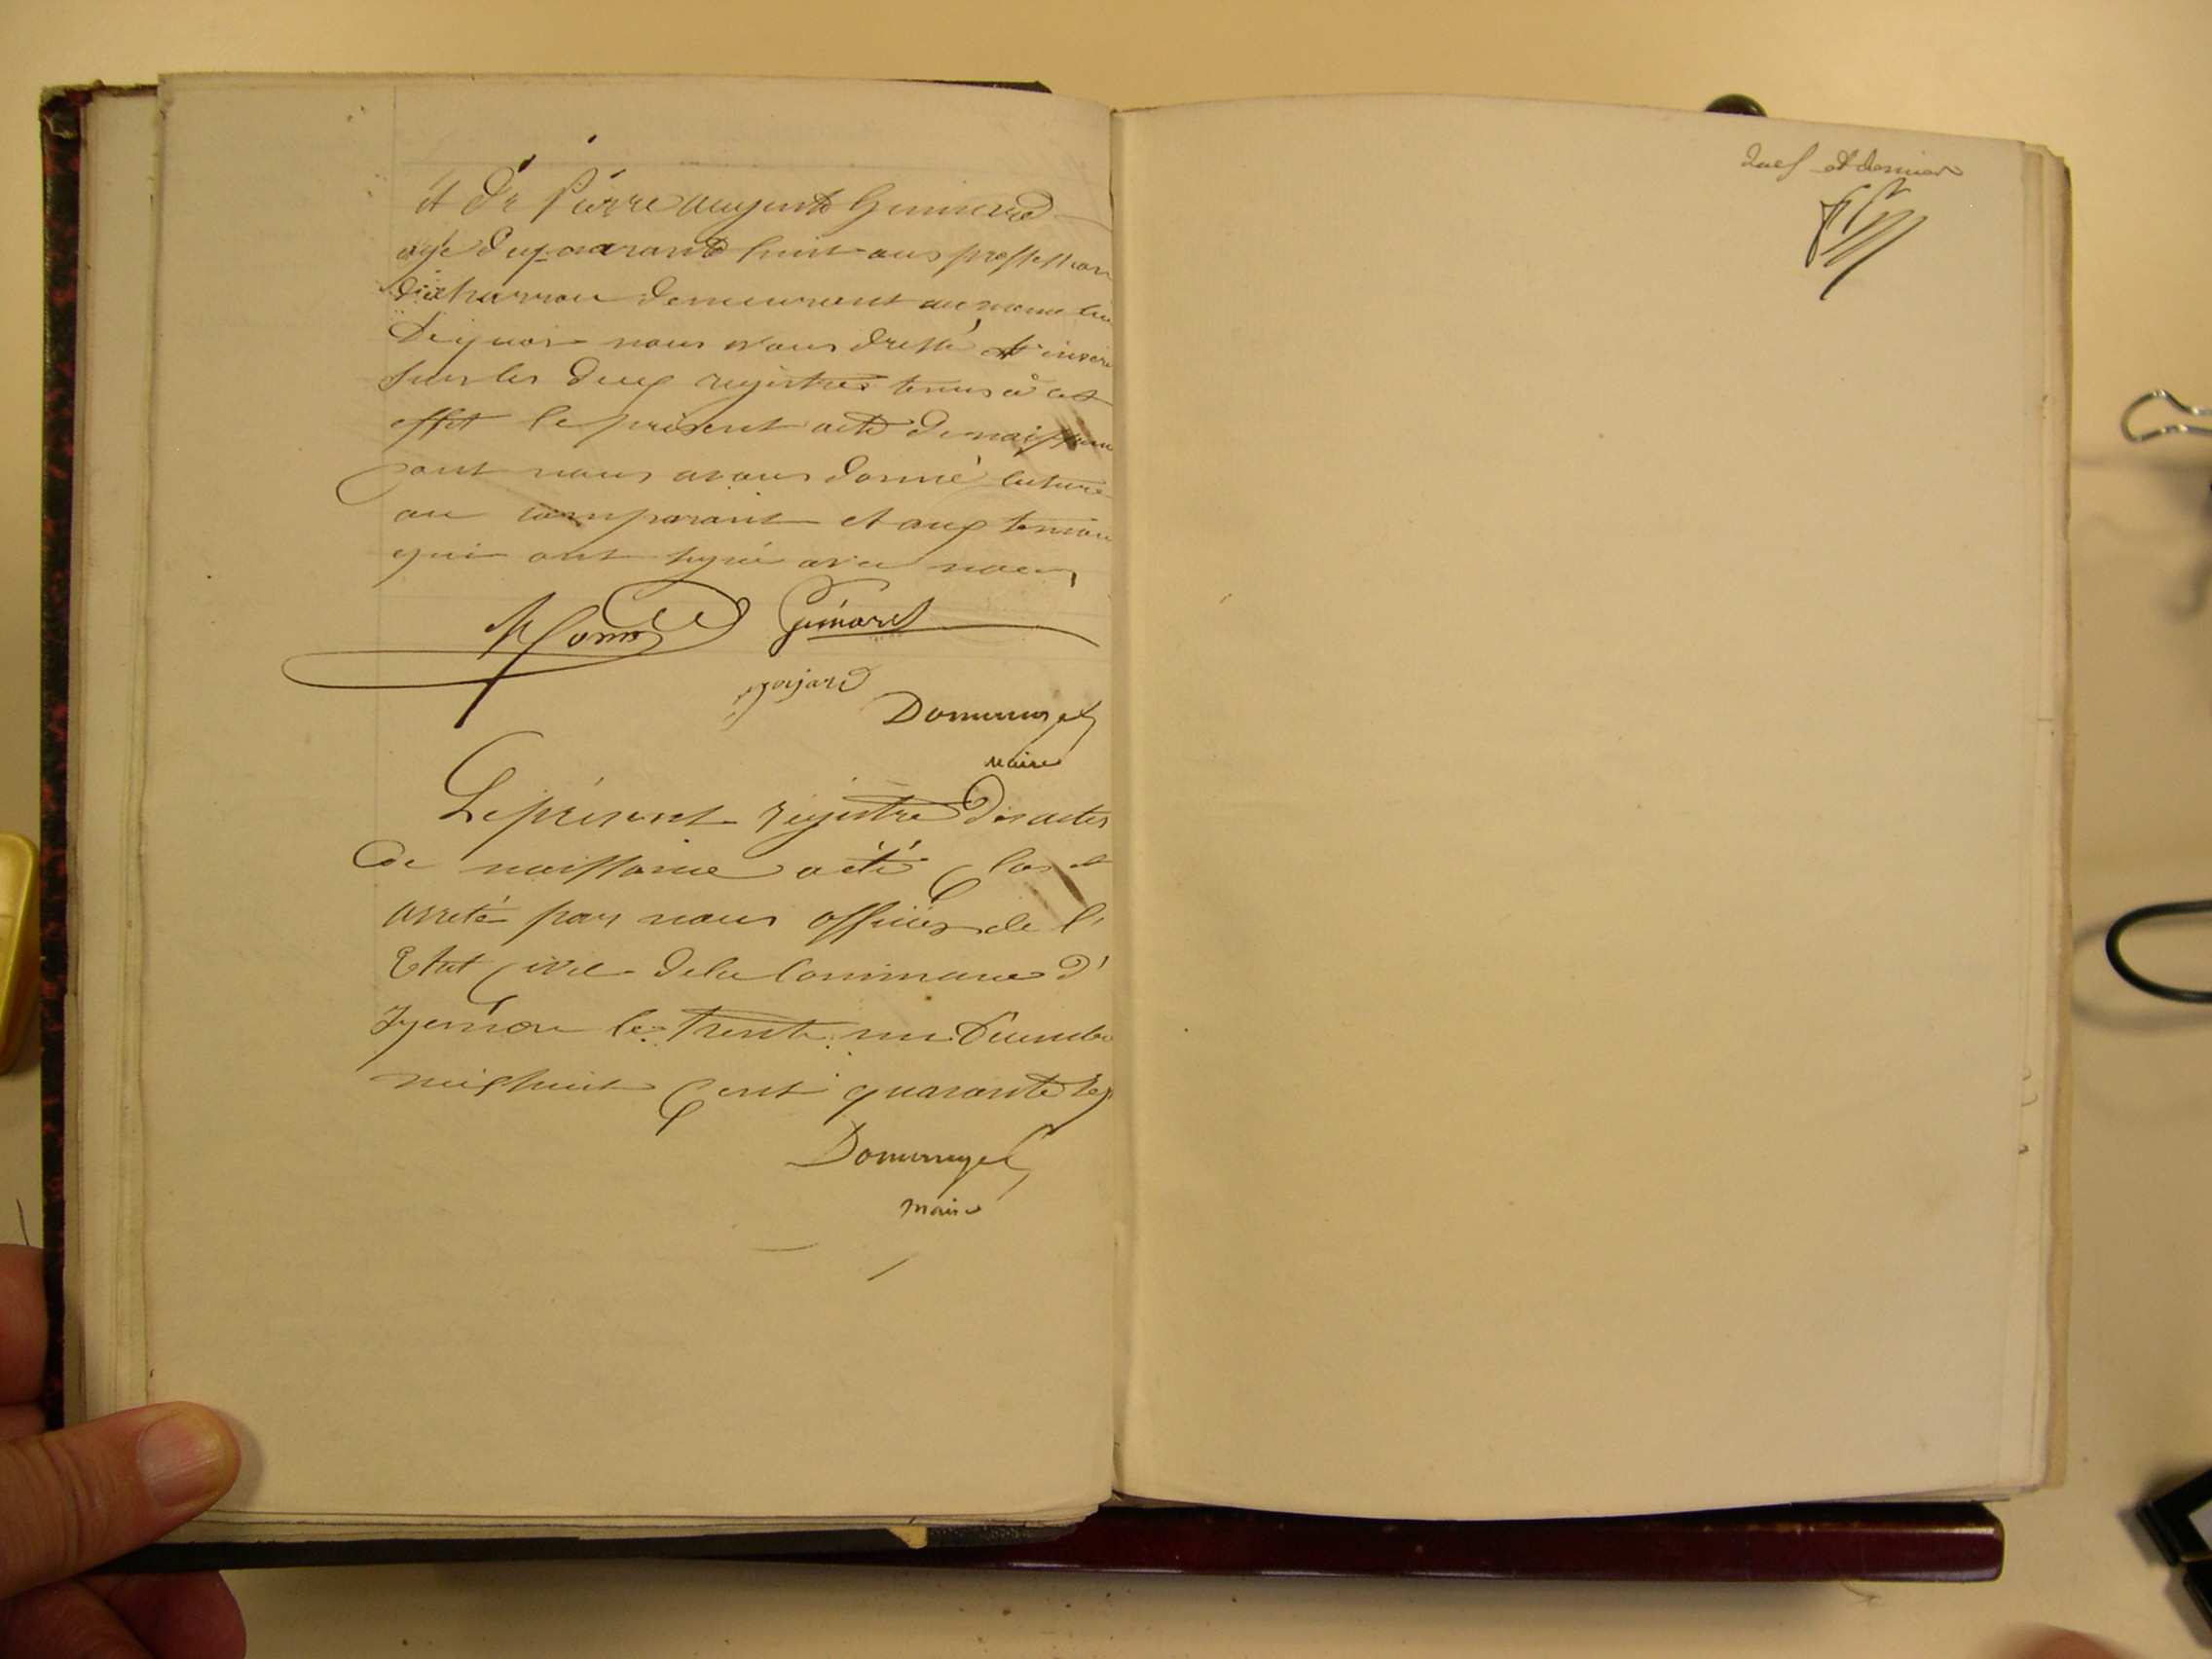 et De Pierre auguste Guinard
agé de quarante huit ans proffession
De charron demeurant au meme lieu
De quoi nous avons dressé et inscri
sur les deux registres tenus à cet
effet le présent acte de naissance
dont nous avons donné lecture
au comparant et aux temoin
qui ont signé avec nous
Guinard
goijard
maire
Le présent registre des actes
de naissance a été clos et
arreté par nous officier de l'
Etat civil de la Commune d'
Izernore le trente un Decembre
mil huit cent quarante
maire
et dernier